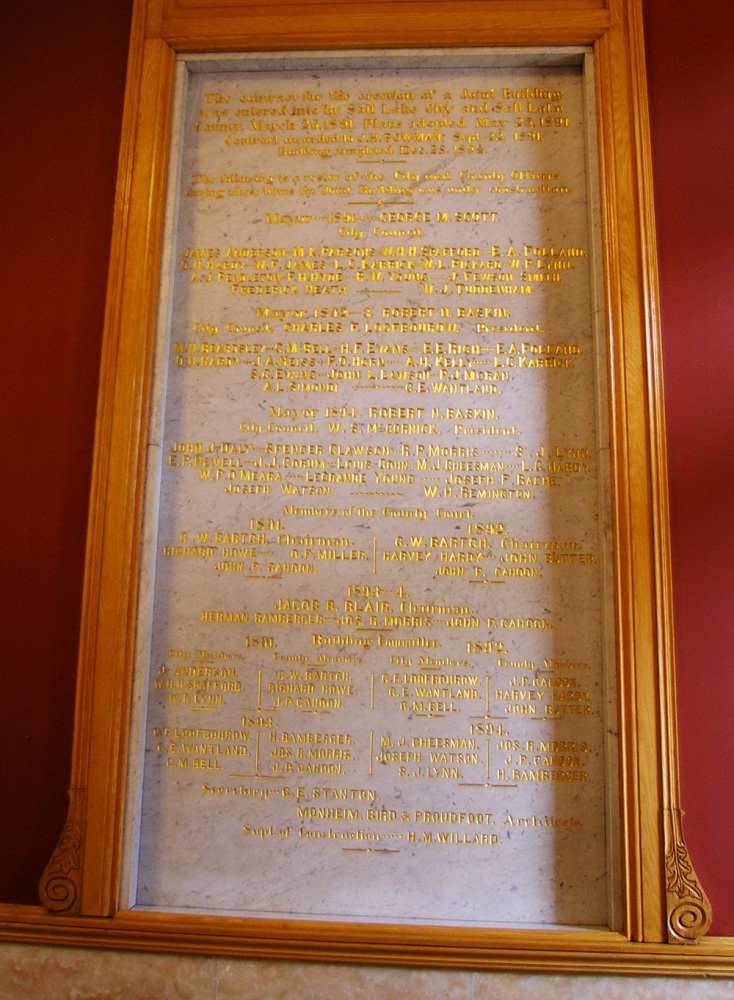 The contract for the erection of a Joint Building
was entered into by Salt Lake City and Salt Lake
County, March 1891. Plans adopted May 1891
Contract awarded to J.H. BOWMAN Sept. 1891.
Building completed Dec. 28.
The following is a roster of the City and County Officers
during whose terms the Joint Building was under construction.
Mayor 1891. GEORGE M. SCOTT.
City Council.
JAMES ANDERSON-M.K. PARSONS-W.H.H. SPAFFORD-E.A. FOLLAND.
O.H. HARDY-W.P. JAMES-L.C. KARRICK-W.L. PICKARD-W.P. LYNN.
A.J. PENDLETON-F.H. HYDE-R.W. YOUNG-J. FEWSON SMITH.
FREDERICK HEATH W.J. TUDDENHAM.
Mayor 1892-3 ROBERT N. BASKIN.
City Council, CHARLES F. LOOFBOUROW, President.
BEARDSLEY-C.M. BELL-H.F. EVANS-E.E. RICH-E.A. FOLLAND
O.H. HARDY-J.A. HEISS-P.O. HORN-A.J. KELLY-L.C. KARRICK.
S.C. EWING-JOHN L. LAWSON-P.J. MORAN.
A.L. SIMONDI C.E. WANTLAND.
Mayor 1894. ROBERT N. BASKIN,
City Council, W.S. McCORNICK, President.
JOHN J. DALY-SPENCER CLAWSON-R.P. MORRIS-S.J. LYNN.
E.F. NEWELL-J.J. CORUM-LOUIS COHN-M.J. CHEESMAN-L.G. HARDY.
W.P. O'MEARA-LEGRANDE YOUNG-JOSEPH F. BACHE.
JOSEPH WATSON W.H. REMINGTON.
Members of the County Court.
1891.
G.W. BARTCH, Chairman.
RICHARD HOWE- O.F. MILLER.
JOHN P. CAHOON.
1892.
G.W. BARTCH, Chairman.
HARVEY HARDY-JOHN BUTTER.
JOHN P. CAHOON.
1893-4.
JACOB B. BLAIR, Chairman.
HERMAN BAMBERGER-JOS. R. MORRIS-JOHN P. CAHOON.
Building Committee.
1891.
City Members.
J. ANDERSON.
W.H.H. SPAFFORD.
W.P. LYNN.
County Members.
G.W. BARTCH.
RICHARD HOWE.
J.P. CAHOON.
1892.
City Members.
C.F. LOOFBOUROW.
C.E. WANTLAND.
C.M. BELL.
County Members.
J.P. CAHOON.
HARVEY HARDY.
JOHN BUTTER.
1893.
C.F. LOOFBOUROW.
C.E. WANTLAND.
C.M. BELL.
H. BAMBERGER.
JOS. R. MORRIS.
J.P. CAHOON.
1894.
M.J. CHEESMAN.
JOSEPH WATSON.
S.J. LYNN.
JOS. R. MORRIS.
J.P. CAHOON.
H. BAMBERGER.
Secretary-C.E. STANTON.
MONHEIM, BIRD & PROUDFOOT, Architects.
Supt. of Construction- H.M. WILLARD.